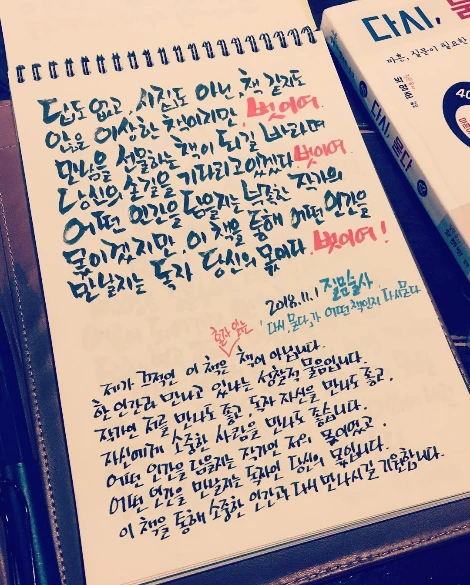 답도 없고, 시집도 아닌 책 같지도
않을 이상한 책이지만 벗이여.
만남을 선물하는 책이 되길 바라며
당신의 손길을 기다리고 있겠다. 벗이여.
어떤 인간을 담을지는 부족한 작가의
몫이겠지만, 이 책을 통해 어떤 인간을
만날지는 독자 당신의 몫이다. 벗이여!
2018.11.1 질맘술사
혼자 있는 '다시 묻다'가 어떤 책인지 다시 묻다
제가 끄적인 이 책은 책이 아닙니다.
한 인간과 만나고 있는 성찰적 물음입니다.
작가인 저를 만나도 좋고, 독자 자신을 만나도 좋고,
자신에게 소중한 사람을 만나도 좋습니다.
어떤 인간을 담을지는 작가인 저의 몫이었고,
어떤 인간을 만날지는 독자인 당신의 몫입니다.
이 책을 통해 소중한 인간과 다시 만나시길 기원합니다.
다시, 물
마흔, 질문이 필요한
박영준
다시, 묻다
40